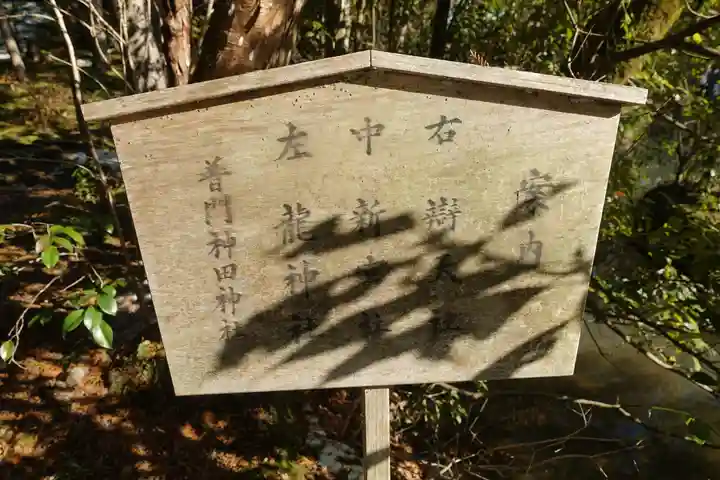 案内
右 辯天社
中 新宮社
左 龍神社
普門神田神社